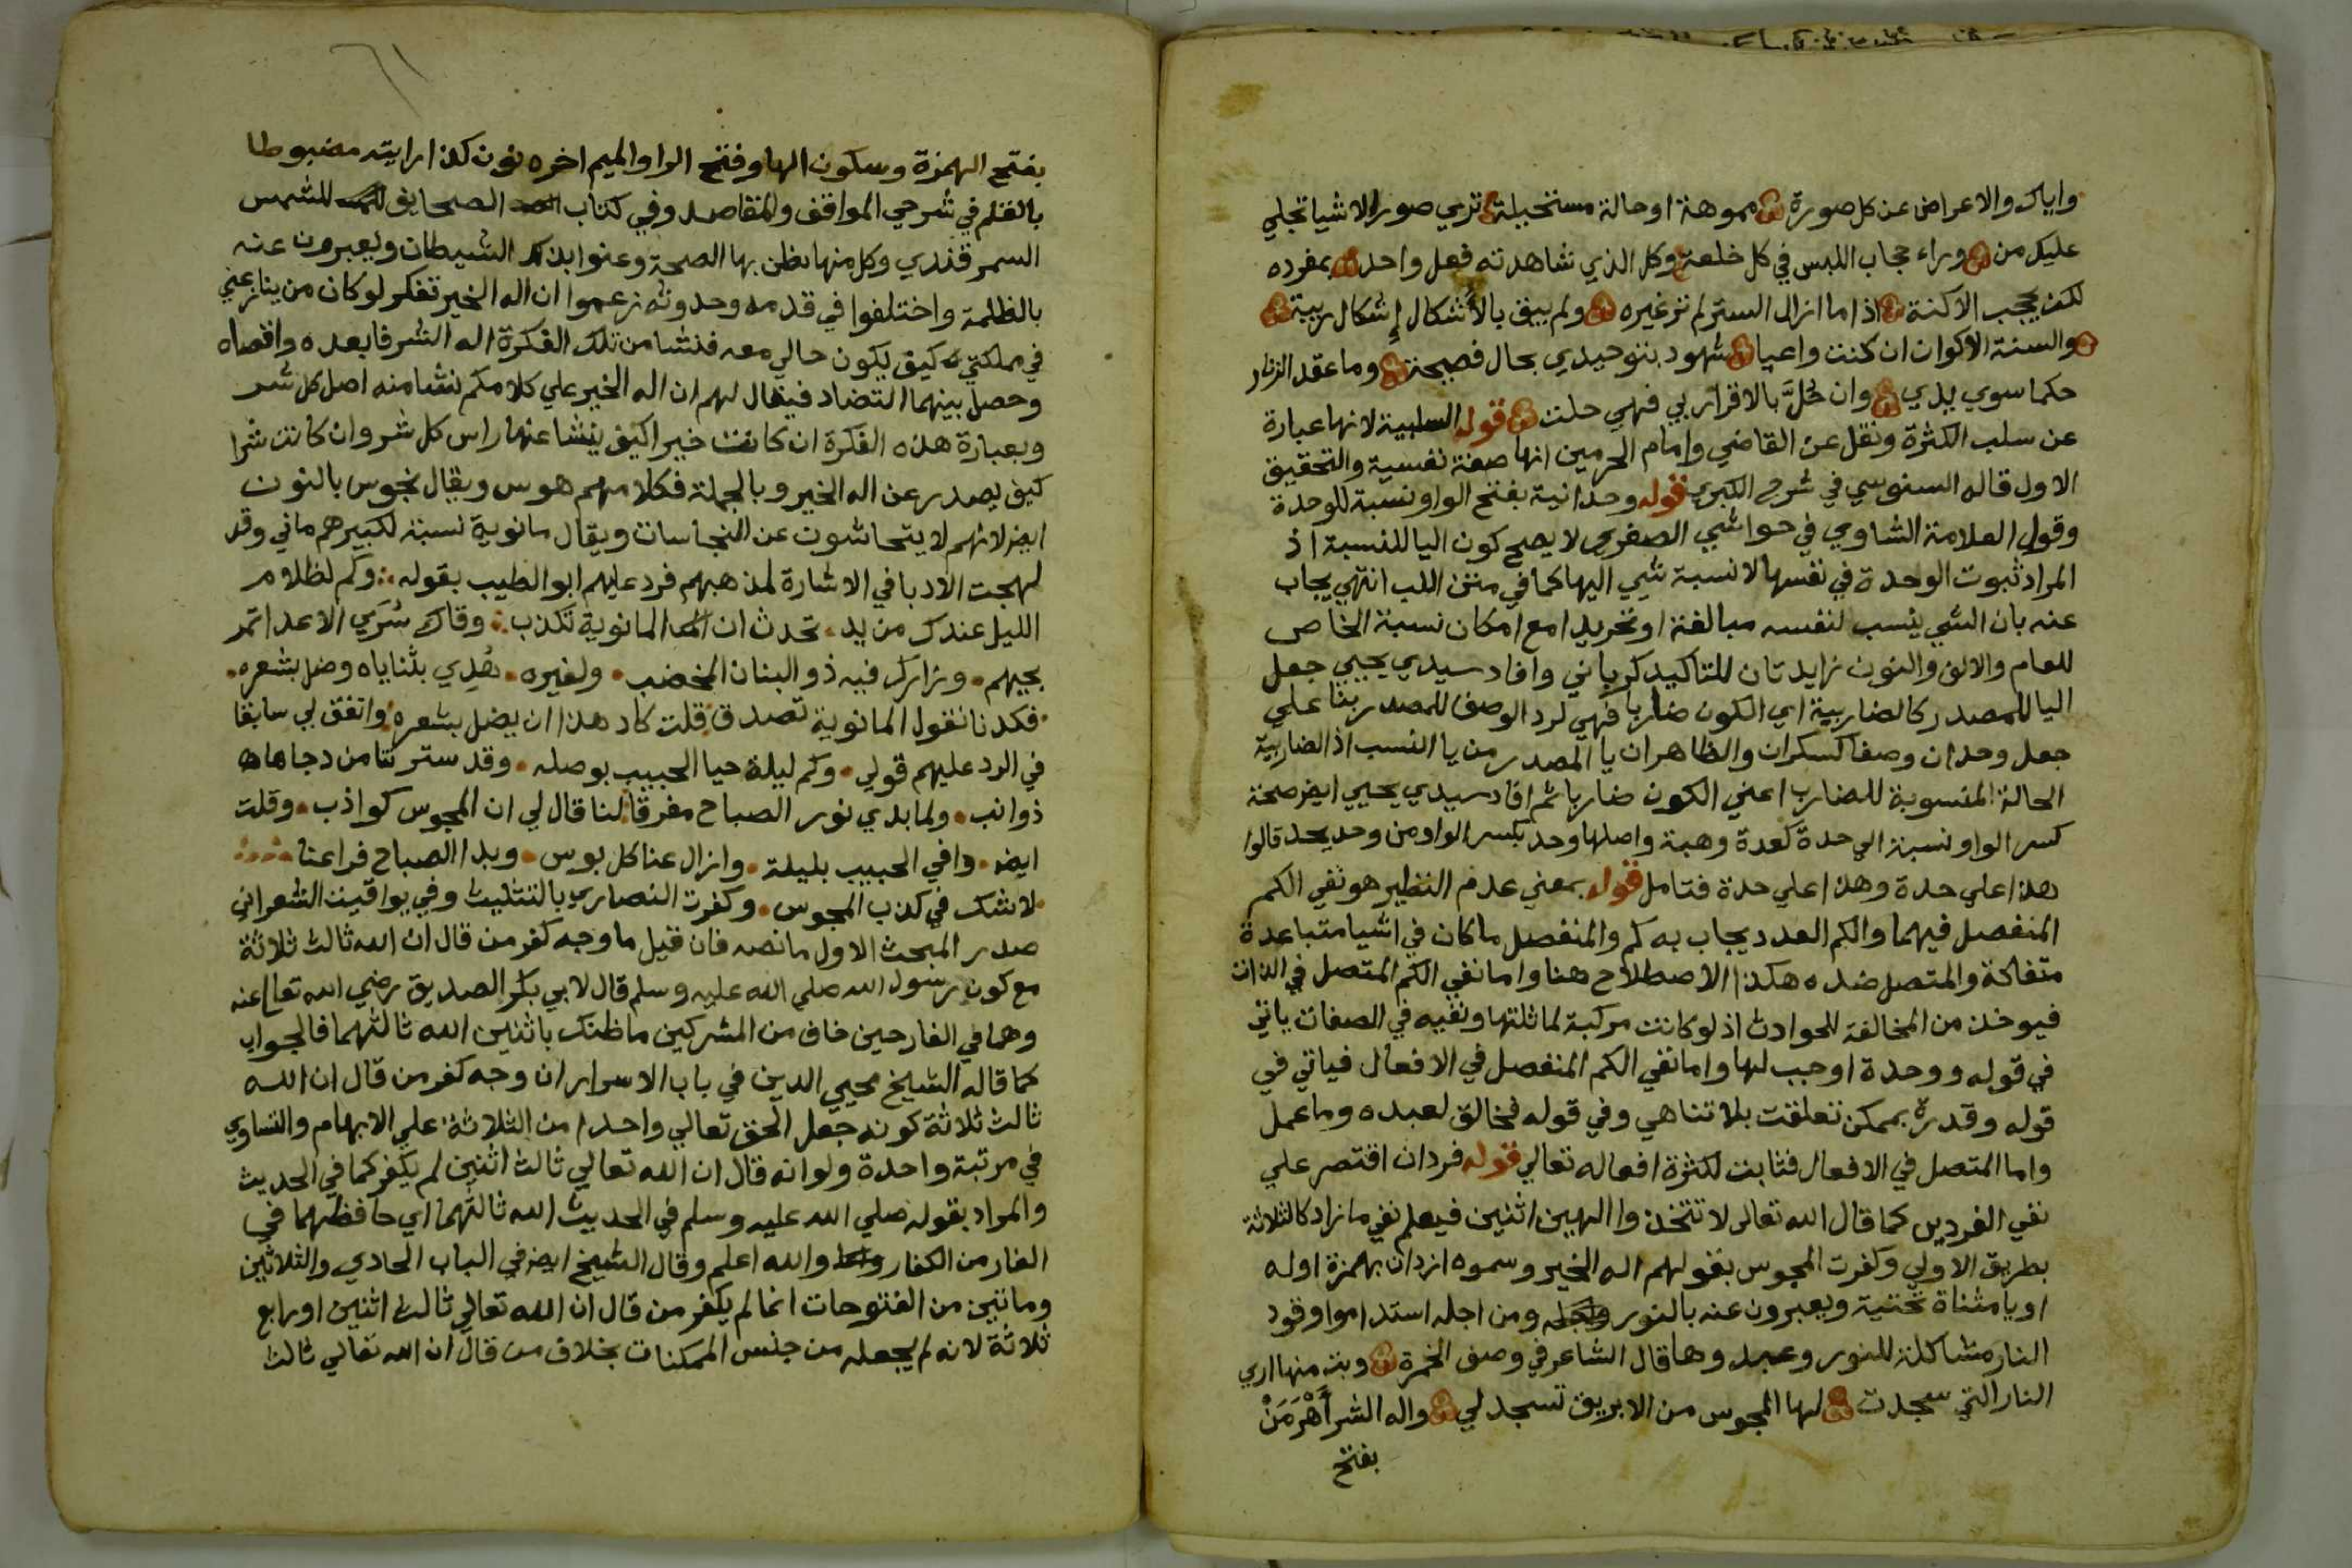 واياك والاعراض عن كل صورة مموهة اوحالة مستحيلة تري صور الاشيا تجلي
عليك من وراء حجاب اللبس في كل خلعة وكل الذي شاهدته فعل واحد بمفرده
لكن بحجب الاكنة اذا ما ازال الستر لم تر غيره ولم يبق بالأشكال إشكال ريبة
والسنة الاكوان ان كنت واعيا شهود بتوحيدي بحال فصيحة وما عقد الزنار
حكما سوي يدي وان حُلَّ بالاقرار بي فهي حلت قوله السلبية لانها عبارة
عن سلب الكثرة ونقل عن القاضي وامام الحرمين انها صفة نفسية والتحقيق
الاول قاله السنوسي في شرح الكبري قوله وحدانية بفتح الواو نسبة للوحدة
وقول العلامة الشاوي في حواشي الصغري لا يصح كون اليا للنسبة اذ
المراد ثبوت الوحدة في نفسها لا نسبة شي اليها كما في متن اللب انتهي يجاب
عنه بان الشي ينسب لنفسه مبالغة او تجريدا مع امكان نسبة الخاص
للعام والالف والنون زايدتان للتاكيد كرباني وافاد سيدي يحيي جعل
اليا للمصدر كالضاربية اي الكون ضاربا فهي لرد الوصف للمصدر بنا علي
جعل وحدان وصفا كسكران والظاهر ان يا المصدر من يا النسب اذ الضاربية
الحالة المنسوبة للضارب اعني الكون ضاربا ثم افاد سيدي يحيي ايض صحة
كسر الواو نسبة الي حدة كعدة وهبة واصلها وحد بكسر الواو من وحد يحد قالوا
هذا علي حدة وهذا علي حدة فتامل قوله بمعني عدم النظير هو نفي الكم
المنفصل فيهما والكم العدد يجاب به كم والمنفصل ما كان في اشيا متباعدة
متفاكة والمتصل ضده هكذا الاصطلاح هنا واما نفي الكم المتصل في الذات
فيوخذ من المخالفة للحوادث اذ لو كانت مركبة لماثلتها ونفيه في الصفات ياتي
في قوله ووحدة اوجب لها واما نفي الكم المنفصل في الافعال فياتي في
قوله وقدرة بممكن تعلقت بلا تناهي وفي قوله فخالق لعبده وما عمل
واما المتصل في الافعال فثابت لكثرة افعاله تعالي قوله فردان اقتصر علي
نفي الفردين كما قال الله تعالي لا تتخذوا الهين اثنين فيعلم نفي ما زاد كالثلاثة
بطريق الاولي وكفرت المجوس بقولهم اله الخير وسموه ازدان بهمزة اوله
او يا مثناة تحتية ويعبرون عنه بالنور ومن اجله استداموا وقود
النار مشاكلة للنور وعبدوها قال الشاعر في وصف الخمرة وبت منها اري
النار التي سجدت لها المجوس من الابريق تسجد لي واله الشر أَهْرَمَنْ
بفتح
بفتح الهمزة وسكون الها وفتح الرا والميم اخره نون كذا رايته مضبوطا
بالقلم في شرحي المواقف والمقاصد وفي كتاب الصحايف للشمس
السمرقندي وكل منها يظن بها الصحة وعنوا بذلك الشيطان ويعبرون عنه
بالظلمة واختلفوا في قدمه وحدوثه زعموا ان اله الخير تفكر لو كان من ينازعني
في مملكتي كيف يكون حالي معه فنشا من تلك الفكرة اله الشر فابعده واقصاه
وحصل بينهما التضاد فيقال لهم ان اله الخير علي كلامكم نشا منه اصل كل شر
وبعبارة هذه الفكرة ان كانت خيرا كيف ينشا عنها راس كل شر وان كانت شرا
كيف يصدر عن اله الخير وبالجملة فكلامهم هوس ويقال نجوس بالنون
ايض لانهم لا يتحاشوت عن النجاسات ويقال مانوية نسبة لكبيرهم ماني وقد
لهجت الادبا في الاشارة لمذهبهم فرد عليهم ابو الطيب بقوله وكم لظلام
الليل عندك من يد تحدث ان المانوية تكذب وقاك سُرَي الاعدا تمر
بجيهم وزارك فيه ذو البنان المخضب ولغيره هُدِي بثناياه وضل بشعره
فكدنا نقول المانوية تصدق قلت كاد هذا ان يضل بشعره واتفق لي سابقا
في الرد عليهم قولي وكم ليلة حيا الحبيب بوصله وقد سترتنا من دجاها
ذوائب ولما بدي نور الصباح مفرقا لنا قال لي ان المجوس كواذب وقلت
ايض وافي الحبيب بليلة وازال عنا كل بوس وبدا الصباح فراعنا
لا شك في كذب المجوس وكفرت النصاري بالتثليث وفي يواقيت الشعراني
صدر المبحث الاول ما نصه فان قيل ما وجه كفر من قال ان الله ثالث ثلاثة
مع كون رسول الله صلي الله عليه وسلم قال لابي بكر الصديق رضي الله تعالي عنه
وهما في الغار حين خاف من المشركين ما ظنك باثنين الله ثالثهما فالجواب
كما قاله الشيخ محيي الدين في باب الاسرار ان وجه كفر من قال ان الله
ثالث ثلاثة كونه جعل الحق تعالي واحدا من الثلاثة علي الابهام والتساوي
في مرتبة واحدة ولو انه قال ان الله تعالي ثالث اثنين لم يكفر كما في الحديث
والمراد بقوله صلي الله عليه وسلم في الحديث الله ثالثهما اي حافظهما في
الغار من الكفار والله اعلم وقال الشيخ ايض في الباب الحادي والثلاثين
ومائتين من الفتوحات انما لم يكفر من قال ان الله تعالي ثالث اثنين او رابع
ثلاثة لانه لم يجعله من جنس الممكنات بخلاف من قال ان الله تعالي ثالث